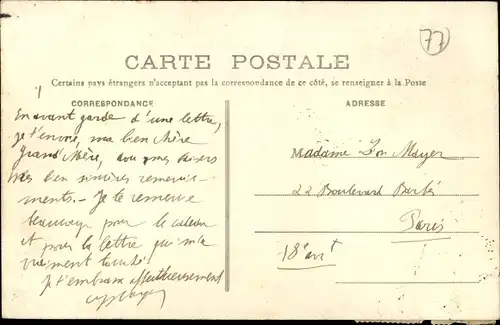 77
CARTE POSTALE
Certains pays étrangers n'acceptant pas la correspondance de ce côté, se renseigner à la Poste
CORRESPONDANCE
En avant garde d'une lettre,
je t'envoie, ma bien chère
Grand'Mère, avec mes baisers
mes bien sincères remercie-
ments. - Je te remercie
beaucoup pour le cadeau
et pour la lettre qui m'a
vraiment touché!
Je t'embrasse affectueusement
ADRESSE
Madame Léon Mayer
22 Boulevard Barbès
Paris
18e arrt